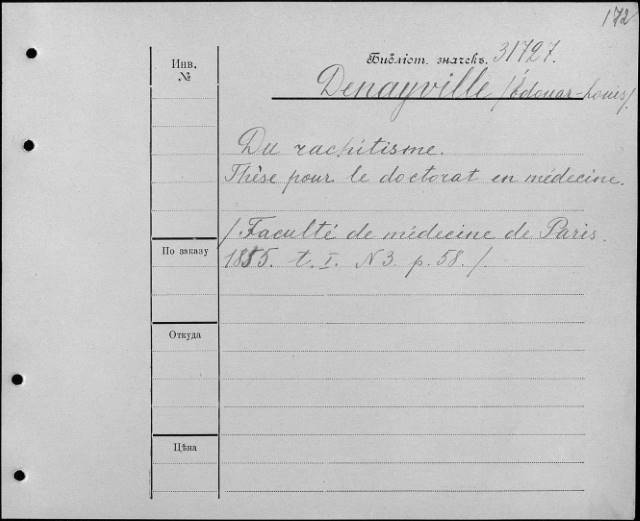 172
Инв.
№
Библіот. значекъ. 31727.
Denayville /Édouar-Louis/.
Du rachitisme.
Thèse pour le doctorat en médecine.
/ Faculté de médecine de Paris.
По заказу
1855. t. I. N 3. p. 58. /.
Откуда
Цѣна